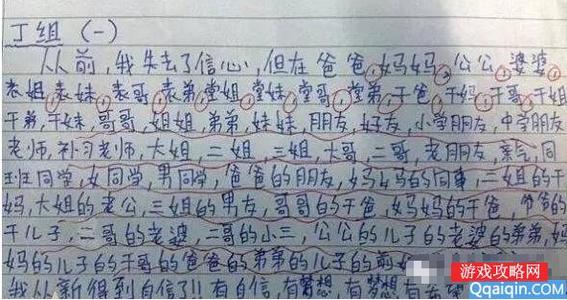 丁组 (一)
从前,我失去了信心,但在爸爸,妈妈,公公,婆婆
表姐,表妹,表哥,表弟,堂姐,堂妹,堂哥,堂弟,干爸,干妈,干哥,干姐
干弟,干妹,哥哥,姐姐,弟弟,妹妹,朋友,好友,小学朋友,中学朋友
老师,补习老师,大姐,二姐,三姐,大哥,二哥,老朋友,亲气,同
班同学,女同学,男同学,爸爸的朋友,妈妈的同事,二姐的干
妈,大姐的老公,三姐的男友,哥哥的干爸,妈妈的干爸,爷爷的
干儿子,二哥的老婆,二哥的小三,公公的儿子的老婆的弟弟,妈
妈的儿子的干哥的爸爸的弟弟的儿子的前
我从新得到自信了!!有自信,有梦想,有梦想有希
游戏攻略网
Qqaiqin.com